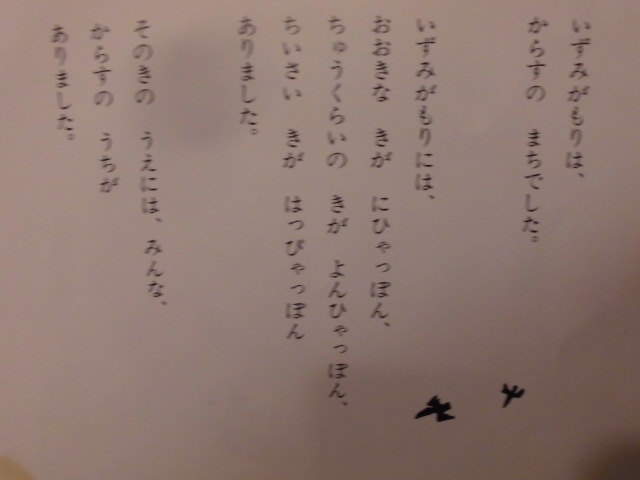 いずみがもりは、
からすの　まちでした。
いずみがもりには、
おおきな　きが　にひゃっぽん、
ちゅうくらいの　きが　よんひゃっぽん、
ちいさい　きが　はっぴゃっぽん
ありました。
そのきの　うえには、みんな、
からすの　うちが
ありました。